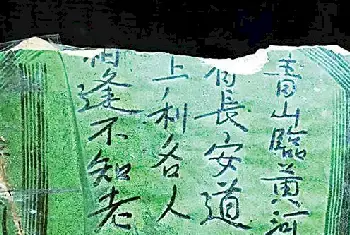 青山臨黃河
有長安道
上利名人
相逢不知老